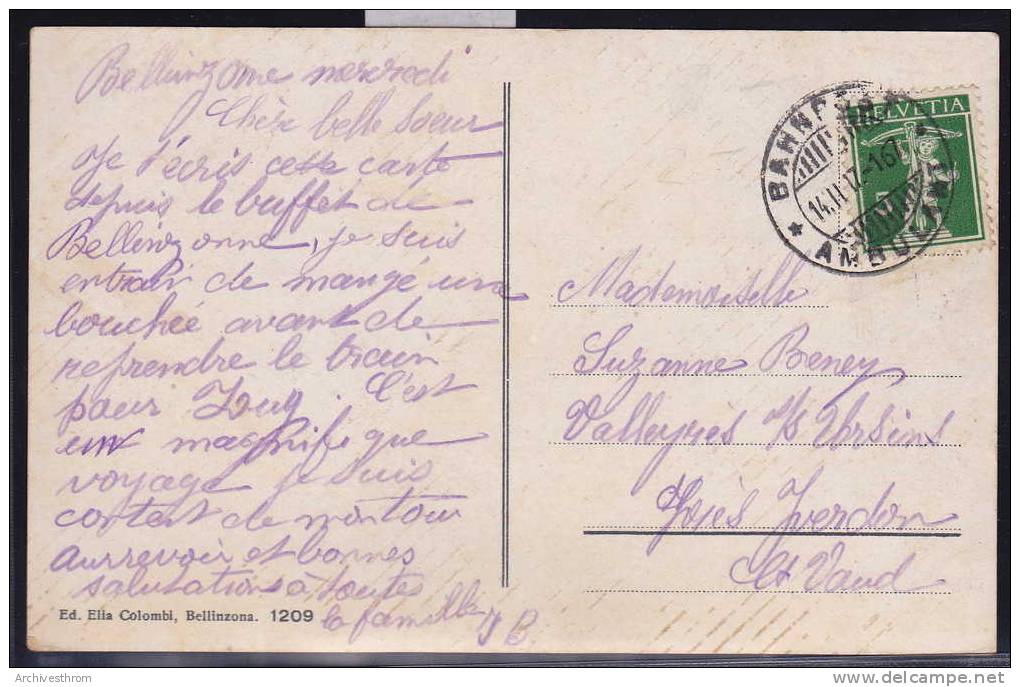 Bellinzone mercredi
Chère belle soeur
Je t'écris cette carte
depuis le buffet de
Bellinzonne, je suis
entrain de mangé une
bouchée avant de
reprendre le train
pour Zoug. C'est
un magnifique
voyage je suis
contant de mon tour
aurrevoir et bonnes
salutations à toutes
la famille
B.
Ed. Elia Colombi, Bellinzona. 1209
HELVETIA
AMBULANT
14.II.17.-16
Mademoiselle
Suzanne Beney
Valleyres s/s Ursins
Yverdon
Ct Vaud
Archivesthrom
delcampe.net